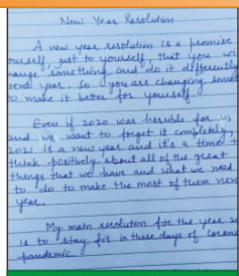 New Year Resolution
A new year resolution is a promise
yourself, just to yourself, that you
something and do it differently
year. So you are changing
to make it better for yourself
Even if 2020 was horrible for us
and we want to forget it completely,
2021 is a new year and it's a time to
think positively about all of the great
things that we have and what we need
to do to make the most of them
year.
My main resolution for the year
is to stay fit in these days of corona
pandemic.